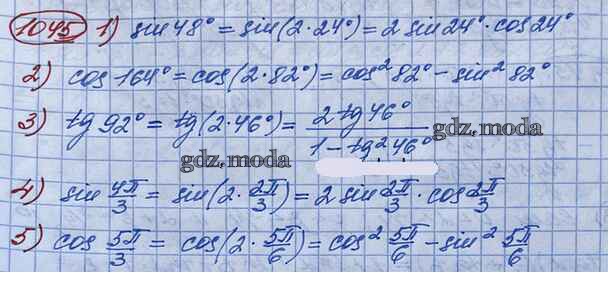 1045 1) sin 48° = sin(2·24°) = 2 sin 24° · cos 24°
2) cos 164° = cos(2·82°) = cos² 82° - sin² 82°
3) tg 92° = tg(2·46°) = 2 tg 46° / 1 - tg² 46°
gdz.moda
gdz.moda
4) sin 4π/3 = sin(2 · 2π/3) = 2 sin 2π/3 · cos 2π/3
5) cos 5π/3 = cos(2 · 5π/6) = cos² 5π/6 - sin² 5π/6